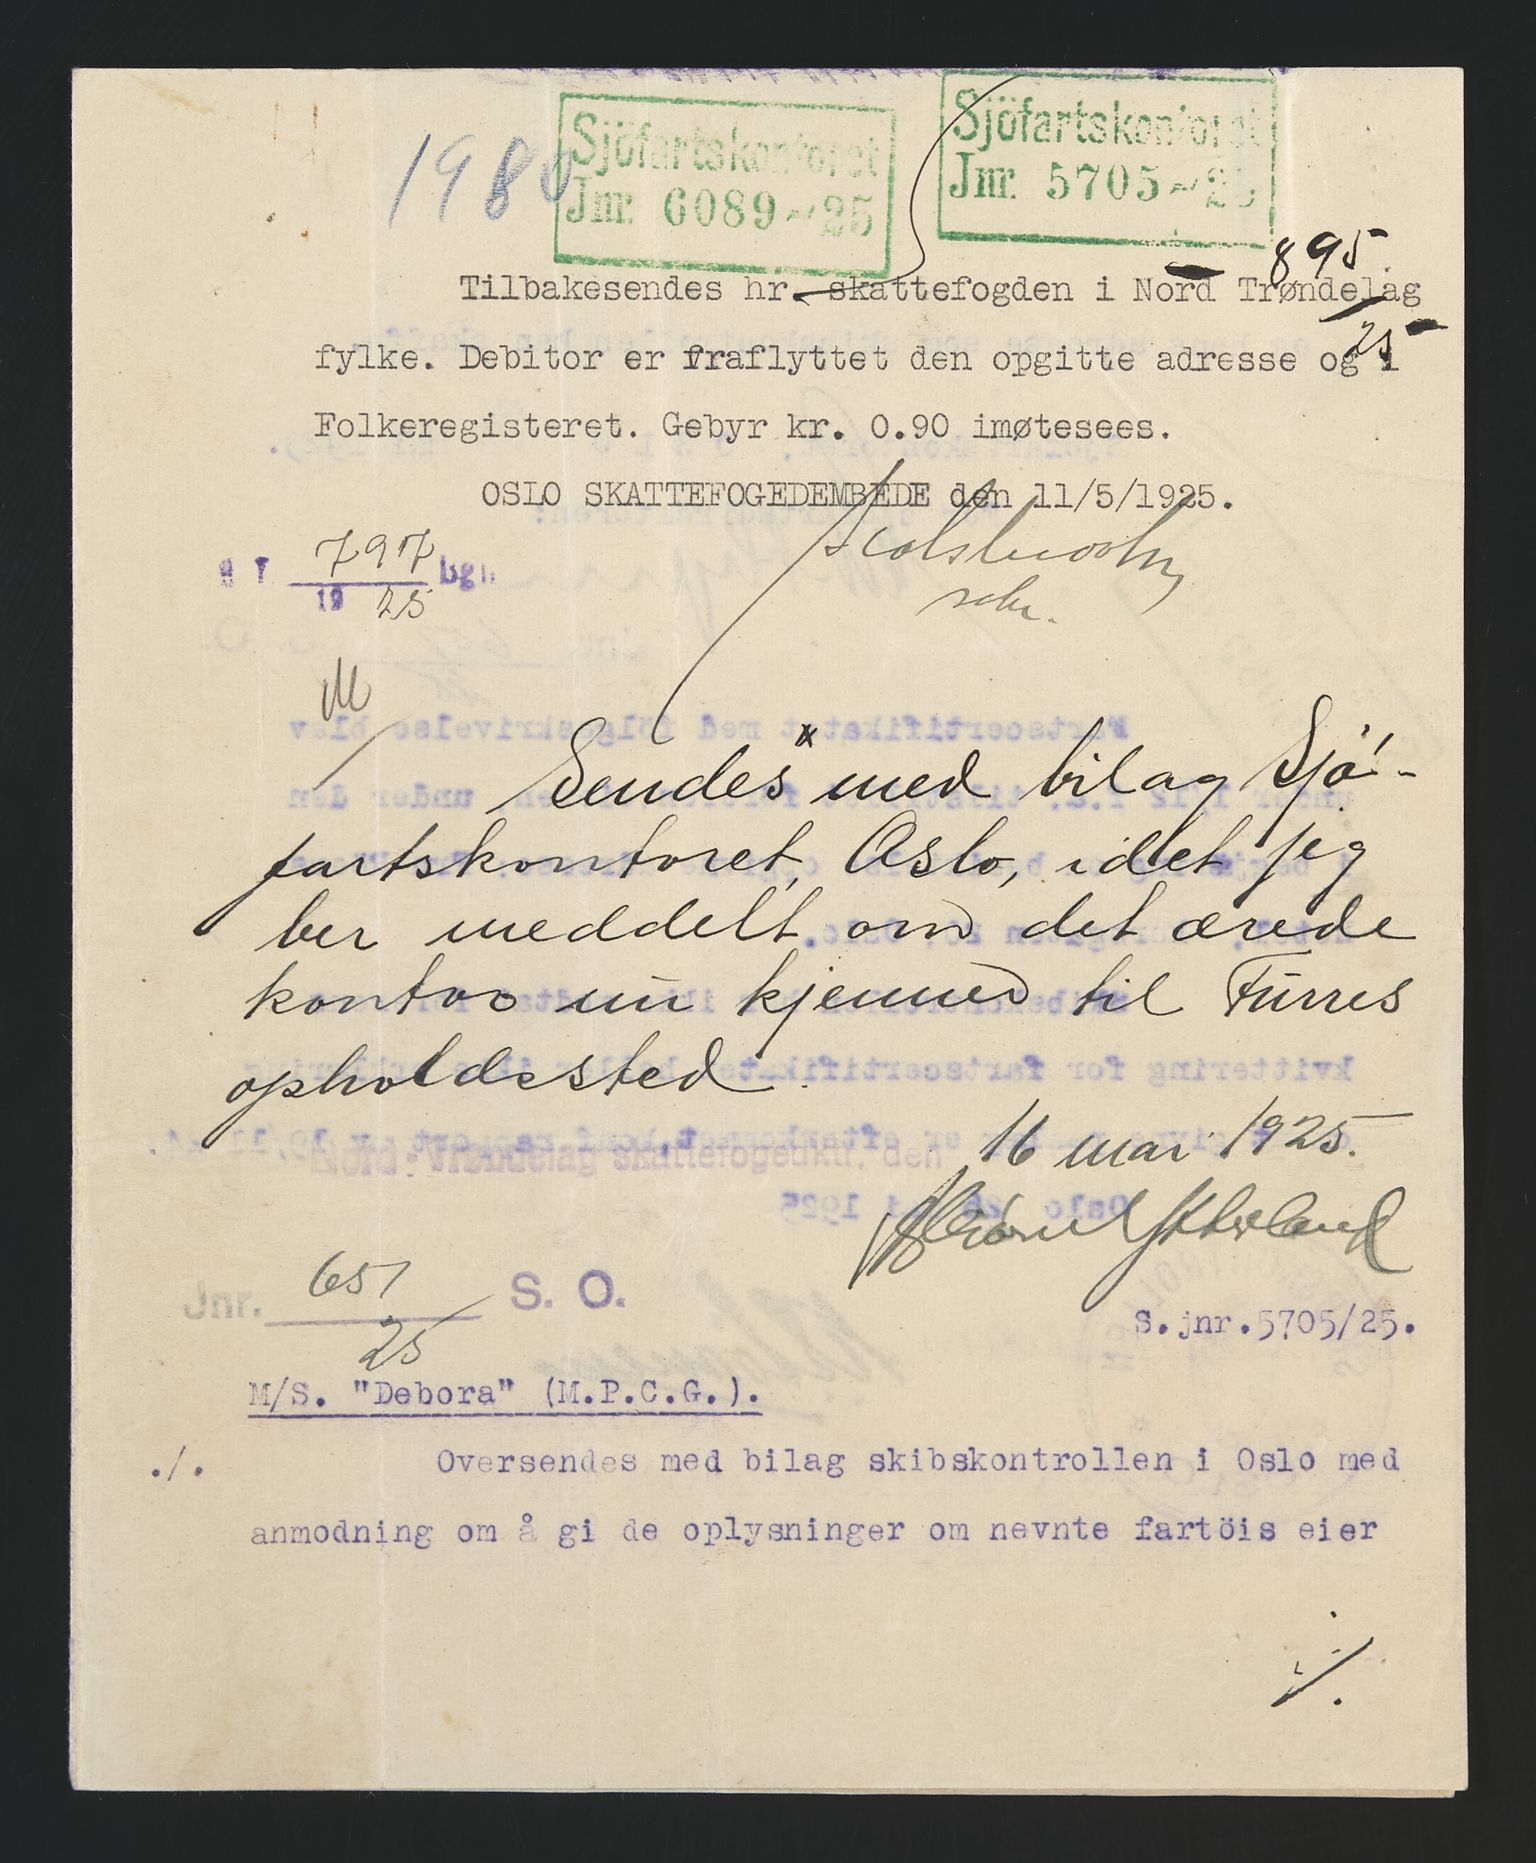 1980
Sjöfartskontoret
Jnr. 6089-25
Sjöfartskontoret
Jnr. 5705-25
895
25
Tilbakesendes hr. skattefogden i Nord Trøndelag
fylke. Debitor er fraflyttet den opgitte adresse og i
Folkeregisteret. Gebyr kr. 0.90 imøtesees.
OSLO SKATTEFOGEDEMBEDE den 11/5/1925.
797
1925
Sendes med bilag Sjö-
fartskontoret, Oslo, idet jeg
ber meddelt om det ærede
kontor er kjenned til Furres
opholdssted.
Nord-Trøndelag skattefogedktr. den 16 mai 1925.
Jnr. 651 S. O.
25
S.jnr.5705/25.
M/S. "Debora" (M.P.C.G.).
./. Oversendes med bilag skibskontrollen i Oslo med
anmodning om å gi de oplysninger om nevnte fartöis eier
./.